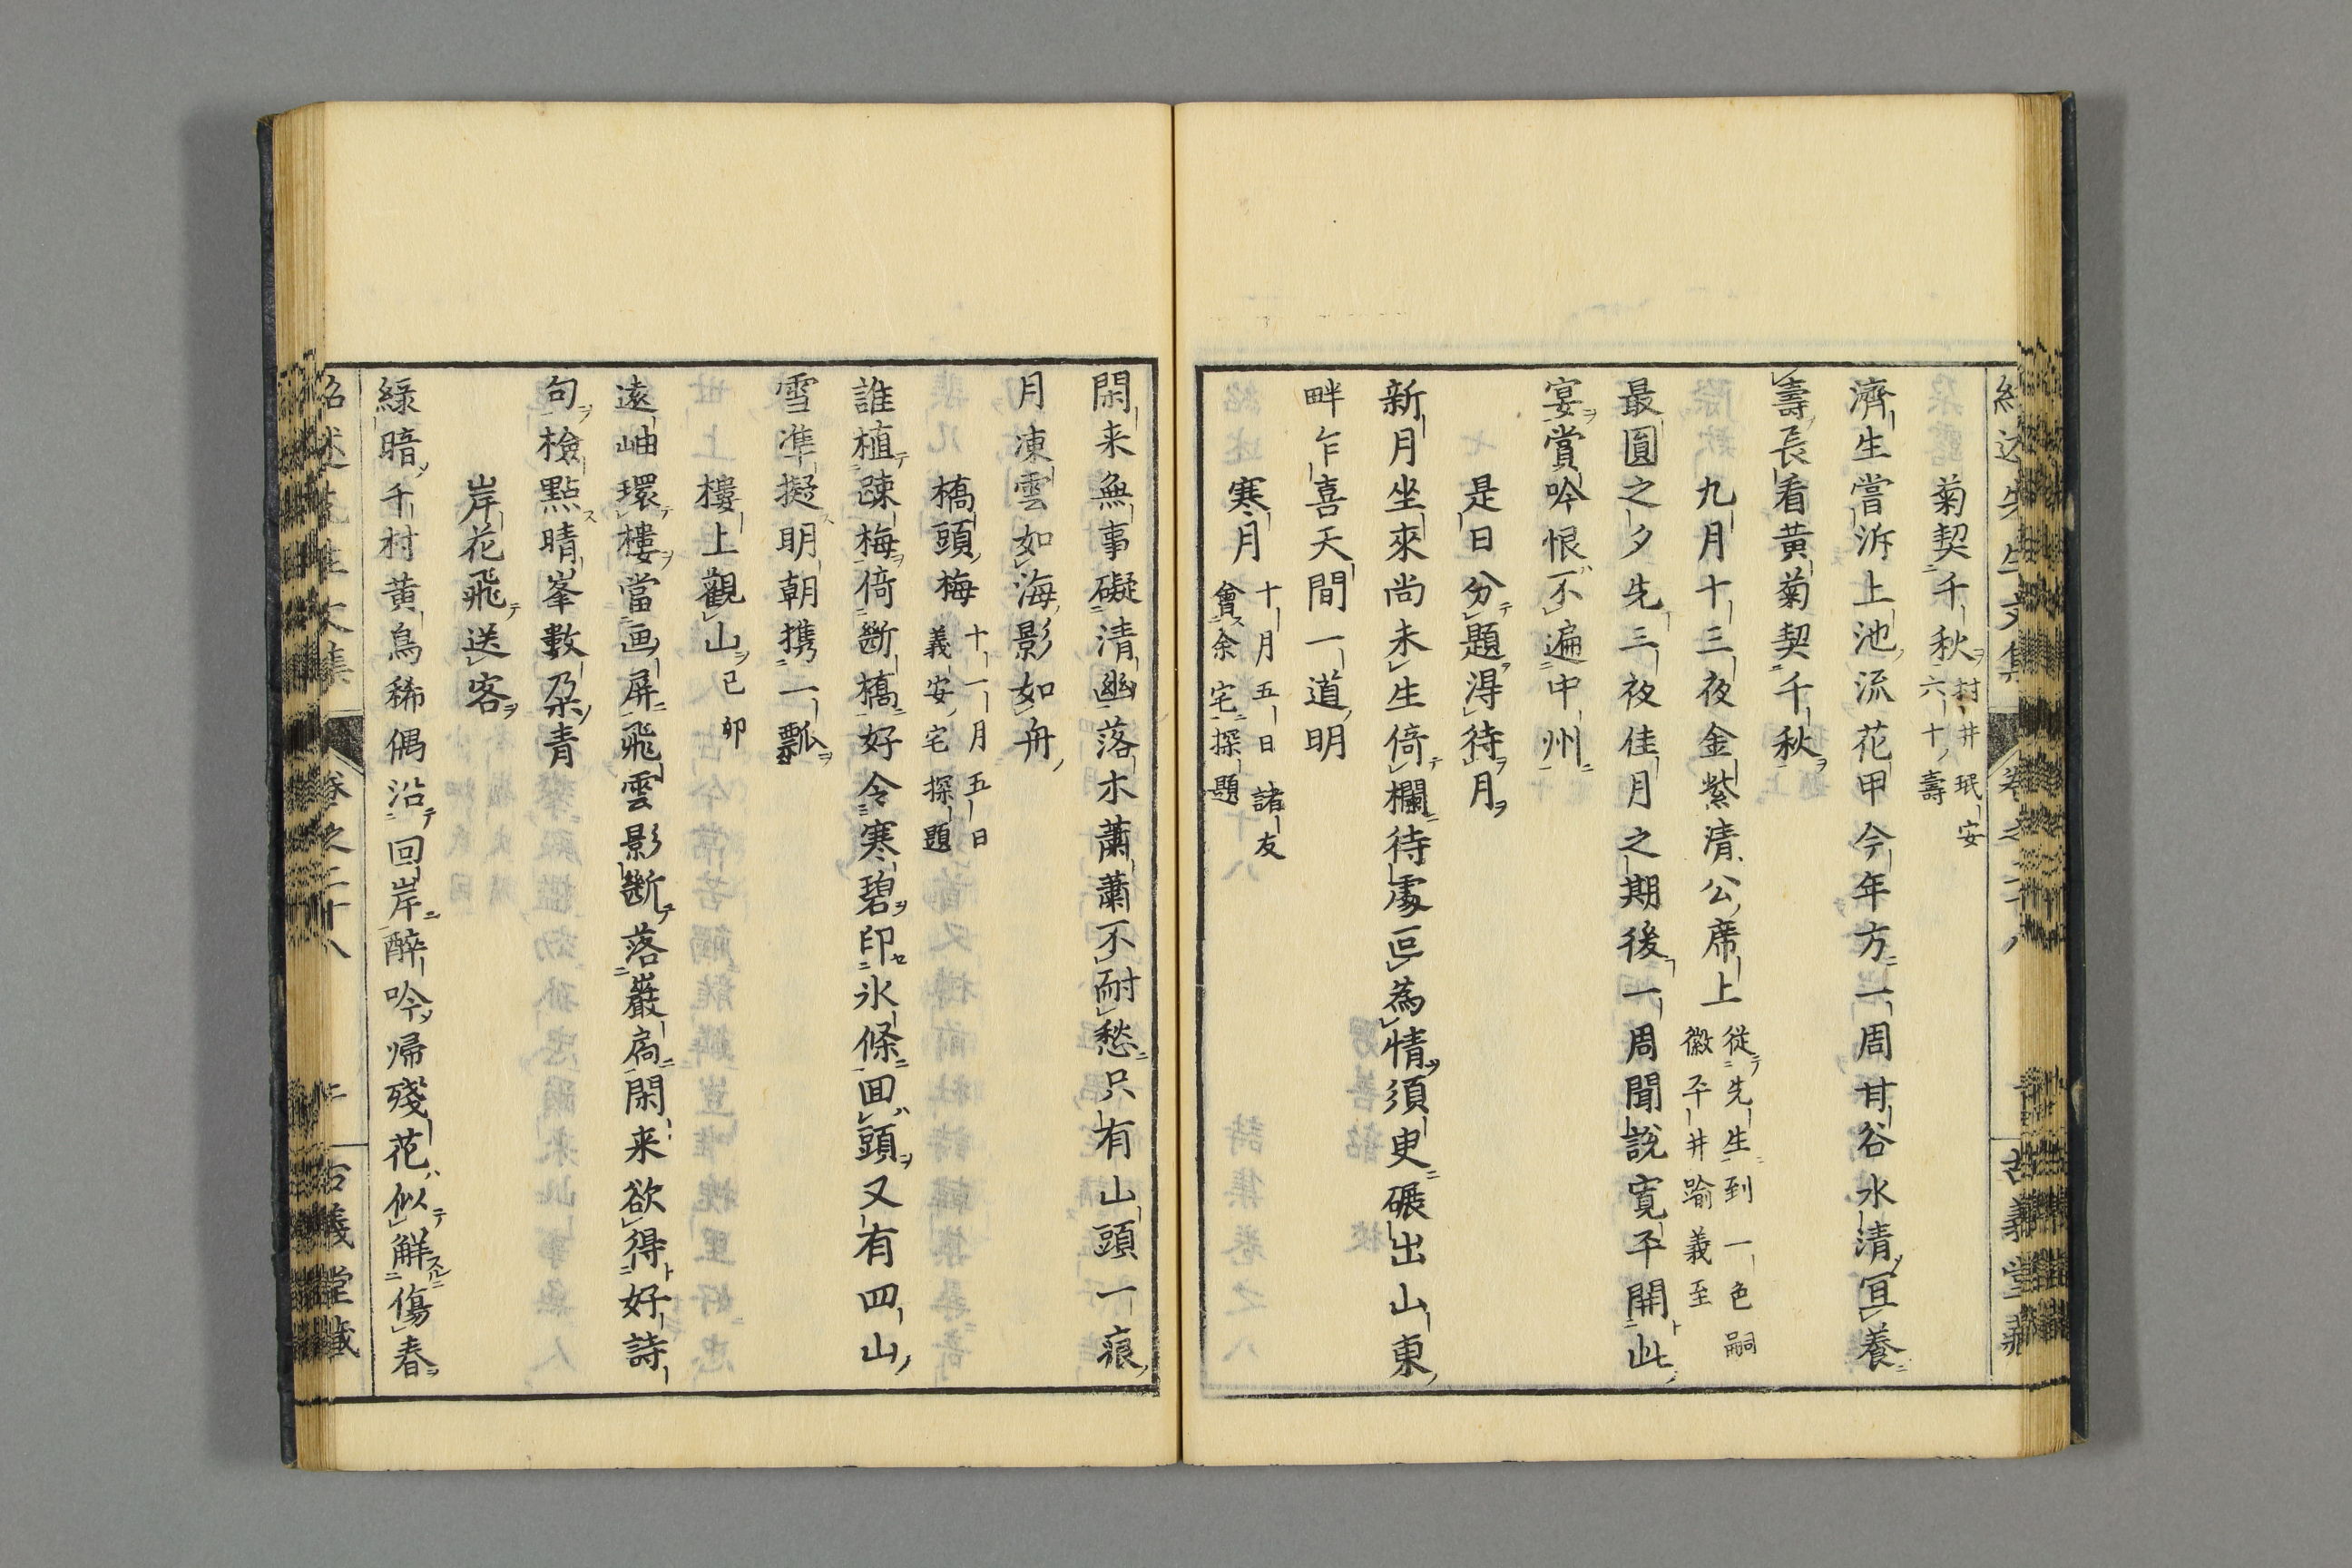 菊契千秋 村井珉安六十壽
濟生嘗泝上池流花甲今年方一周甘谷水清冝養
壽長看黄菊契千秋
九月十三夜金紫清公席上 從先生到一色嗣徽平井喻義至
最圓之夕先三夜佳月之期後一周聞説寛平開此
宴賞吟恨不遍中州
是日分題淂待月
新月坐來尚未生倚欄待處叵為情須臾碾出山東
畔乍喜天間一道明
寒月 十月五日諸友會余宅探題
閑来無事礙清幽落木蕭蕭不耐愁只有山頭一痕
月凍雲如海影如舟
橋頭梅 十一月五日義安宅探題
誰植疎梅倚斷橋好令寒碧印氷條囬頭又有四山
雪凖擬明朝携一瓢
樓上觀山 己卯
遠岫環樓當画屏飛雲影斷落巖扃閑来欲得好詩
句檢點晴峯數朶青
岸花飛送客
緑暗千村黄鳥稀偶沿回岸醉吟帰殘花似解傷春
紹述先生文集 卷之二十八 古義堂藏